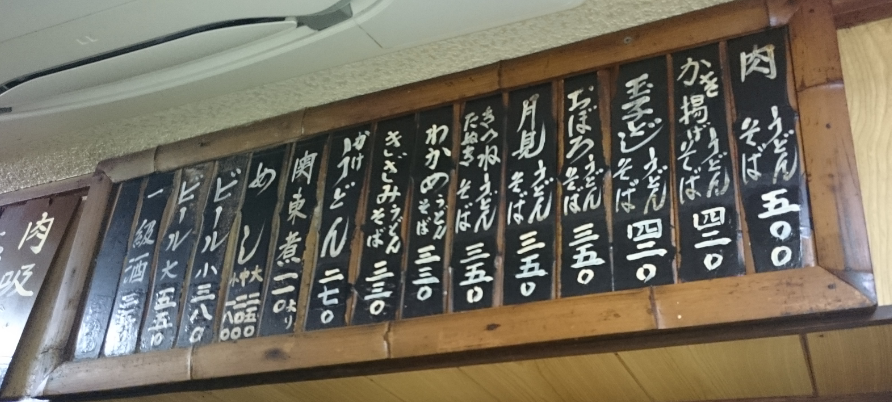 肉うどんそば 五〇〇
かき揚げうどんそば 四二〇
玉子とじうどんそば 四二〇
おぼろうどんそば 三五〇
月見うどんそば 三五〇
きつねうどん たぬきそば 三五〇
わかめうどんそば 三三〇
きざみうどんそば 三三〇
かけうどん 二七〇
関東煮 一一〇より
めし 大 二五〇 中 二〇〇 小 一八〇
ビール小 三八〇
ビール大 五五〇
一級酒
肉吸